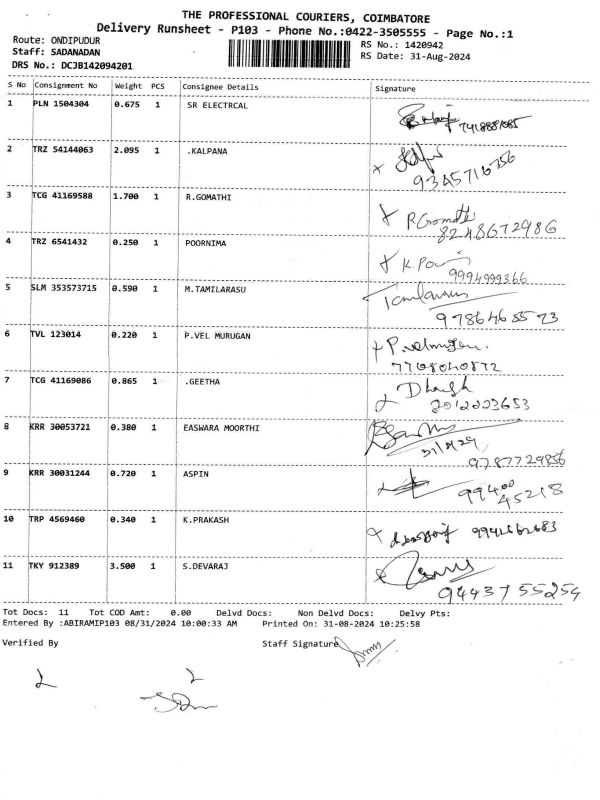 THE PROFESSIONAL COURIERS, COIMBATORE
Delivery Runsheet - P103 - Phone No.:0422-3505555 - Page No.:1
Route: ONDIPUDUR
RS No.: 1420942
Staff: SADANADAN
RS Date: 31-Aug-2024
DRS No.: DCJB142094201
S No Consignment No Weight PCS Consignee Details Signature
1 PLN 1504304 0.675 1 SR ELECTRCAL
2 TRZ 54144063 2.095 1 .KALPANA
9345716756
3 TCG 41169588 1.700 1 R.GOMATHI
R Gomathi
8248672986
4 TRZ 6541432 0.250 1 POORNIMA
K. Poorni
9994999366
5 SLM 353573715 0.590 1 M.TAMILARASU
9786465573
6 TVL 123014 0.220 1 P.VEL MURUGAN
P. velmurgan.
7708040872
7 TCG 41169086 0.865 1 .GEETHA
8012223653
8 KRR 30053721 0.380 1 EASWARA MOORTHI
9787729856
9 KRR 30031244 0.720 1 ASPIN
99400
45218
10 TRP 4569460 0.340 1 K.PRAKASH
11 TKY 912389 3.500 1 S.DEVARAJ
9443755254
Tot Docs: 11 Tot COD Amt: 0.00 Delvd Docs: Non Delvd Docs: Delvy Pts:
Entered By :ABIRAMIP103 08/31/2024 10:00:33 AM Printed On: 31-08-2024 10:25:58
Verified By Staff Signature